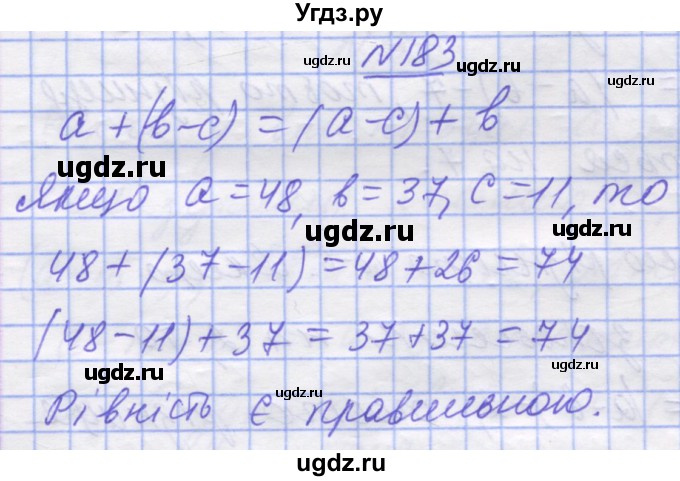 Угдз.ру
№183
ugdz.ru
a + (b-c) = (a-c) + b
ugdz.ru ugdz.ru
Якщо a=48, b=37, c=11, то
ugdz.ru ugdz.ru
48+(37-11)=48+26=74
(48-11)+37=37+37=74
ugdz.ru ugdz.ru
Рівність є правильною.
ugdz.ru
ugdz.ru